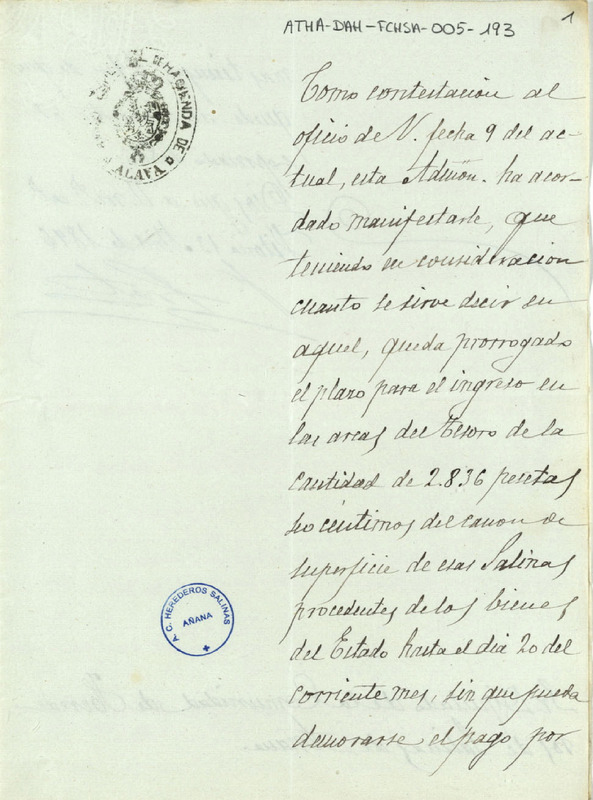 ATHA-DAH-FCHSA-005-193
1
HACIENDA DE
ALAVA
Como contestación al
oficio de V. fecha 9 del ac-
tual, esta Admón. ha acor-
dado manifestarle, que
teniendo en consideración
cuanto se sirve decir en
aquel, queda prorrogado
el plazo para el ingreso en
las arcas del Tesoro de la
cantidad de 2.836 pesetas
céntimos del canon de
superficie de esas Salinas
procedentes de los bienes
del Estado hasta el dia 20 del
corriente mes, sin que pueda
demorarse el pago por
A. C. HEREDEROS SALINAS
AÑANA